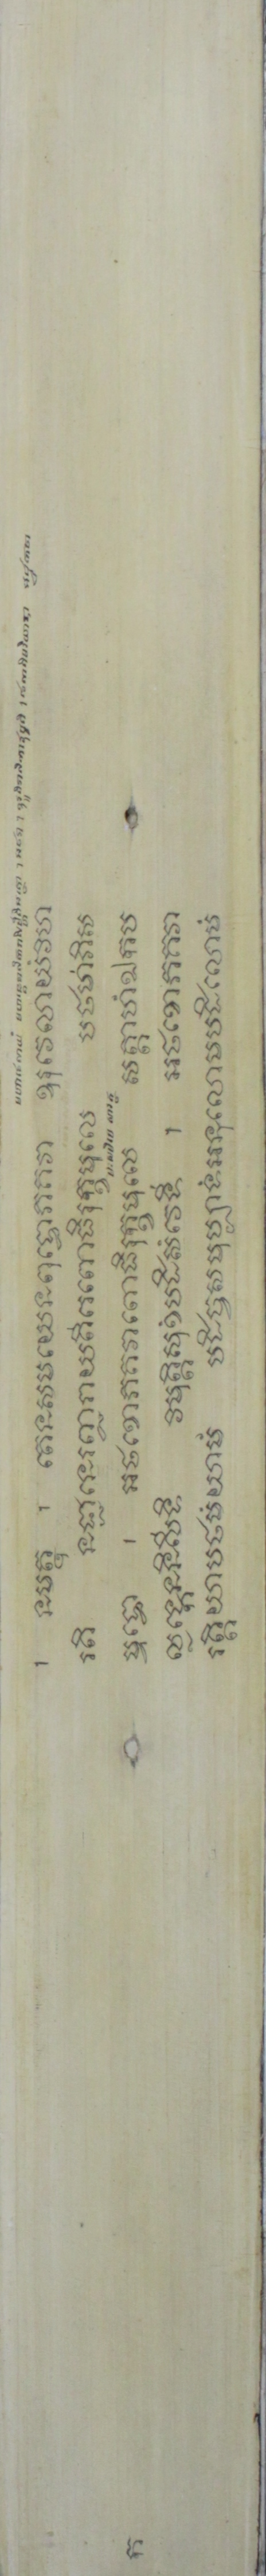 ។ នមត្ថុ ។ តេនសមយេនពុទ្ធោភគវា ឧរុវេលាយំវិហ
រតិ នជ្ជានេរញ្ជរាយតីរេពោធិរុក្ខមូលេ បថមាភិស
ម្ពុទ្ធោ ។ អថខោភគវាពោធិរុក្ខមូលេ សត្តាហំឯកប
ល្លង្កេននិសីទិ វិមុត្តិសុខំបដិសំវេទី ។ អថខោភគវា
រត្តិយាបថមំយាមំ បដិច្ចសមុប្បាទំអនុលោមបដិលោមំ
ក